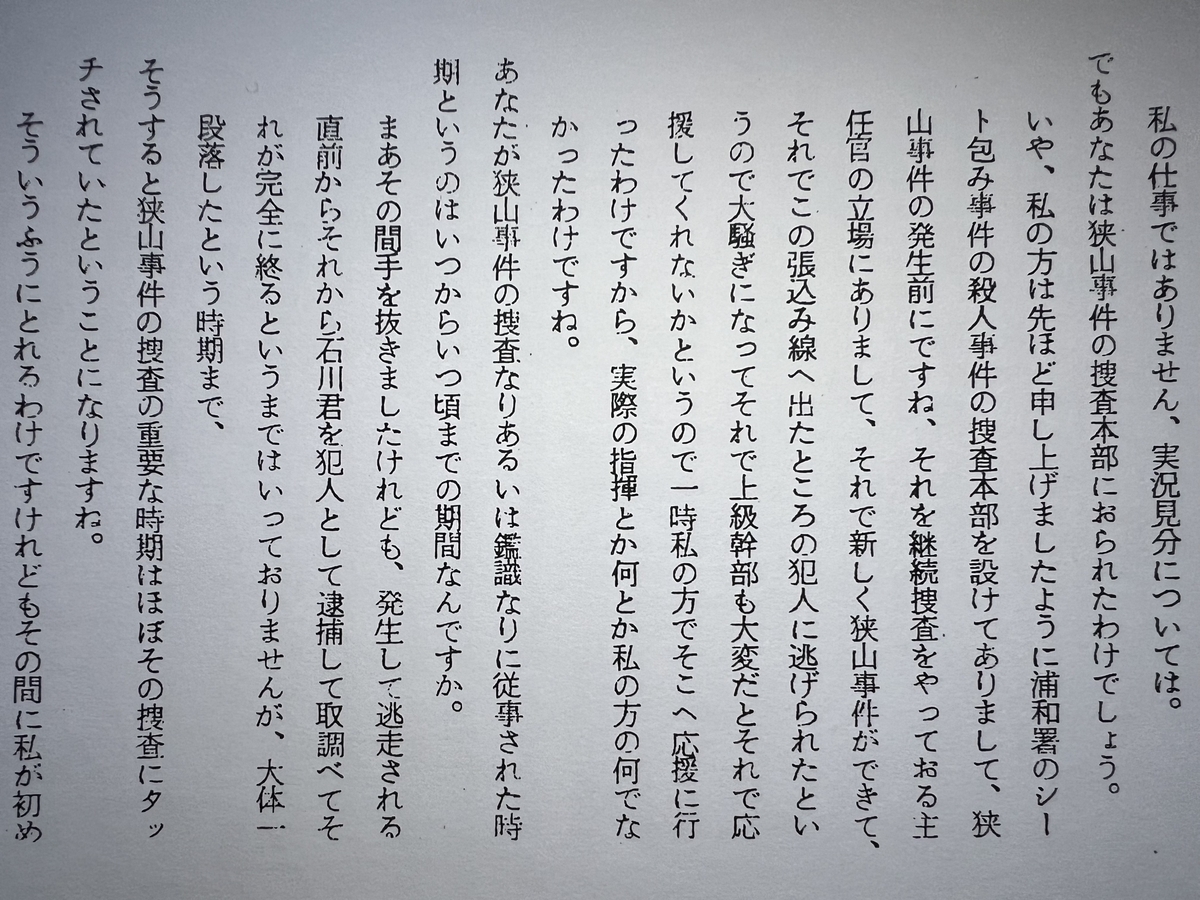 私の仕事ではありません、実況見分については。
でもあなたは狭山事件の捜査本部におられたわけでしょう。
いや、私の方は先ほど申し上げましたように浦和署のシー
ト包み事件の殺人事件の捜査本部を設けてありまして、狭
山事件の発生前にですね、それを継続捜査をやっておる主
任官の立場にありまして、それで新しく狭山事件ができて、
それでこの張込み線へ出たところの犯人に逃げられたとい
うので大騒ぎになってそれで上級幹部も大変だとそれで応
援してくれないかというので一時私の方でそこへ応援に行
ったわけですから、実際の指揮とか何とか私の方の何でな
かったわけですね。
あなたが狭山事件の捜査なりあるいは鑑識なりに従事された時
期というのはいつからいつ頃までの期間なんですか。
まあその間手を抜きましたけれども、発生して逃走される
直前からそれから石川君を犯人として逮捕して取調べてそ
れが完全に終るというまではいっておりませんが、大体一
段落したという時期まで、
そうすると狭山事件の捜査の重要な時期はほぼその捜査にタッ
チされていたということになりますね。
そういうふうにとれるわけですけれどもその間に私が初め